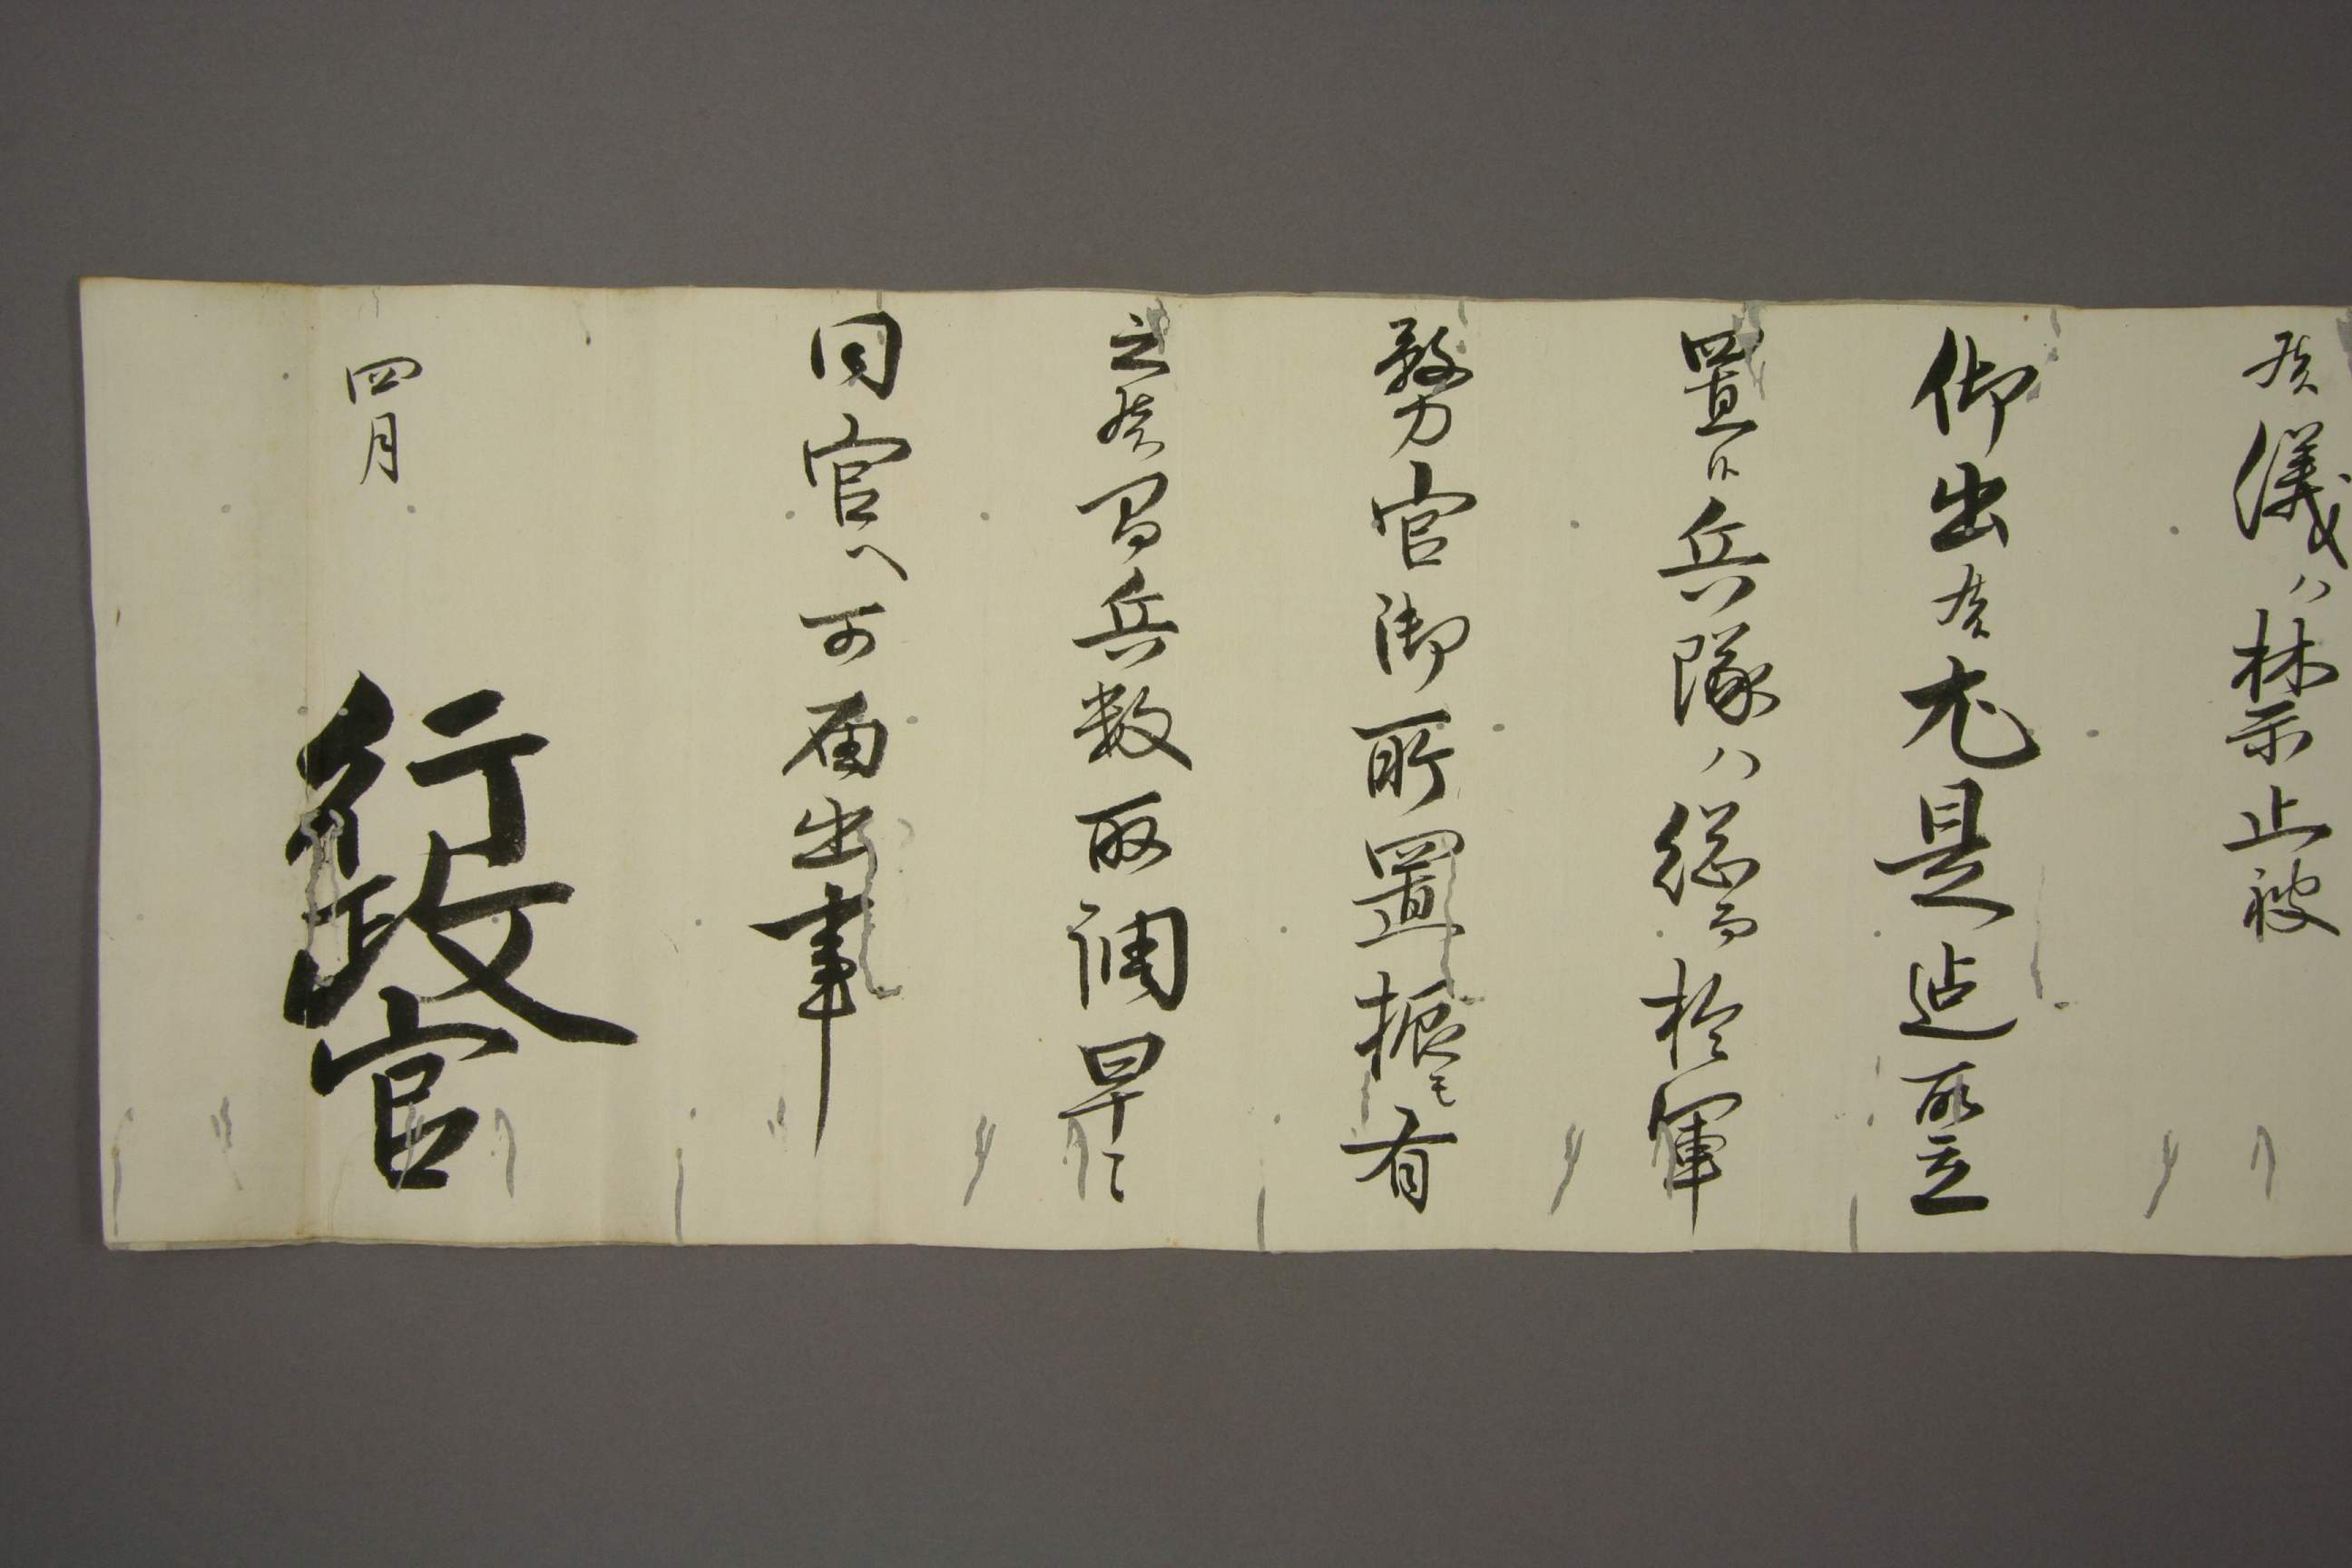 候儀ハ禁止被
仰出候尤是迠取立
置候兵隊ハ総而於軍
務官御所置振モ有
之候間兵数取調早々
同官ヘ可届出事
四月
行政官